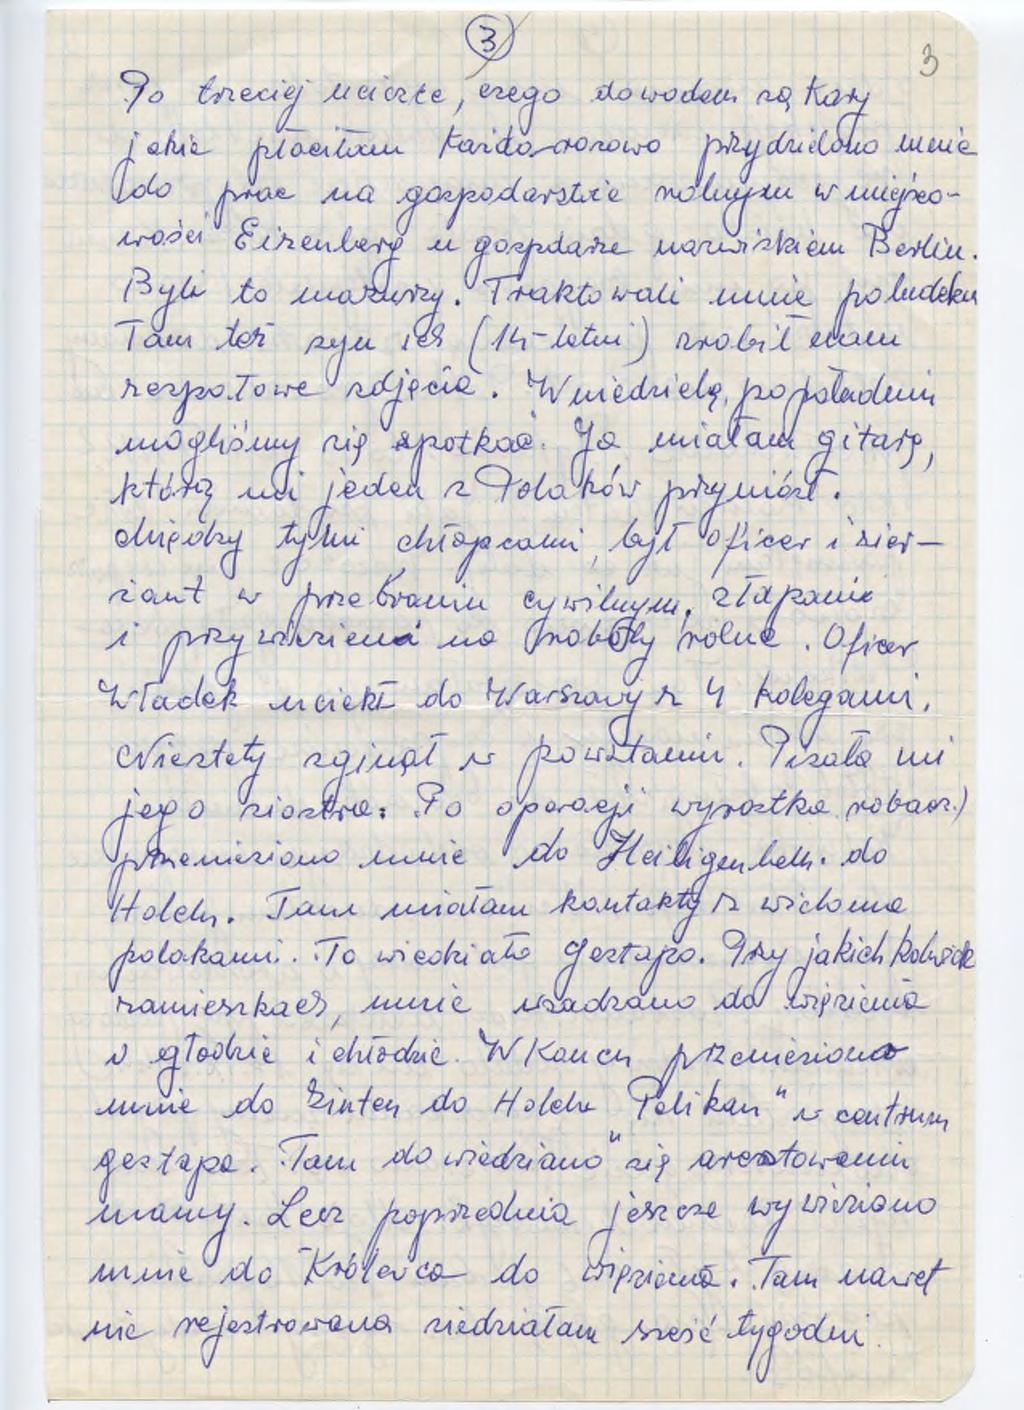 3
3
Po trzeciej ucieczce, czego dowodem są kary
jakie płaciłam każdorazowo przydzielono mnie
do prac na gospodarstwie rolnym w miejsco-
wości Eisenberg u gospodarze nazwiskiem Berlin.
Byli to mazurzy. Traktowali mnie poludzku
Tam też syn ich (14-letni) zrobił nam
zespołowe zdjęcia. W niedzielę, popołudniu
mogliśmy się spotkać. Ja miałam gitarę,
którą mi jeden z Polaków przyniósł.
Między tymi chłopcami, był oficer i sier-
żant w przebraniu cywilnym, złapani
i przywiezieni na roboty rolne. Oficer
Władek uciekł do Warszawy z 4 kolegami.
Niestety zginął w powstaniu. Pisała mi
jego siostra. Po operacji wyrostka robacz.)
przeniesiono mnie do Heiligenbeils. do
Hotelu. Tam miałam kontakty z wieloma
polakami. To wiedziało Gestapo. Przy jakichkolwiek
zamieszkach, mnie wsadzano do więzienia
o głodzie i chłodzie. W Koncu przeniesiono
mnie do Zinten do Hotelu "Pelikan" w centrum
gestapo. Tam dowiedziano się aresztowaniu
mamy. Lecz poprzednia jeszcze wywieziono
mnie do Królewca do więzienia. Tam nawet
nie rejestrowana siedziałam sześć tygodni.